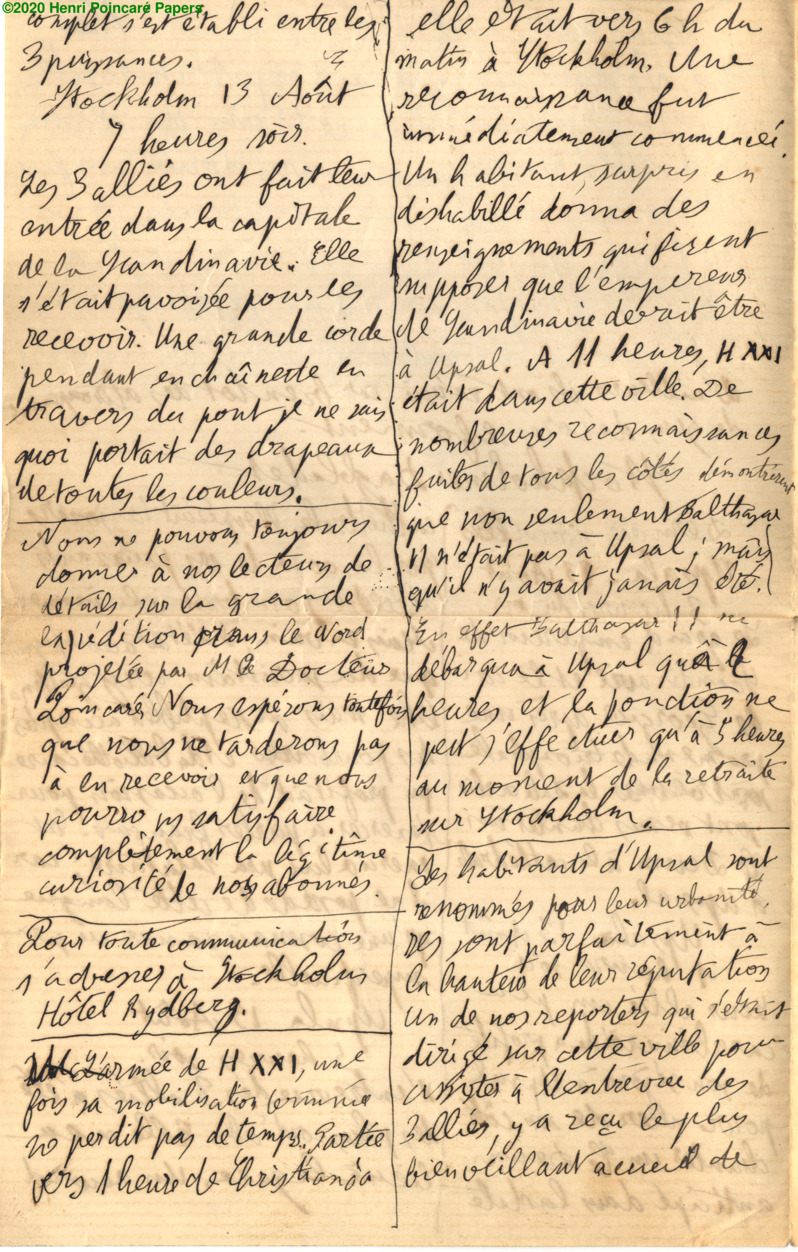 ©2020 Henri Poincaré Papers
complet s'est établi entre les
3 puissances.
Stockholm 13 Août
7 heures soir.
Les 3 alliés ont fait leur
entrée dans la capitale
de la Scandinavie. Elle
s'était pavoisée pour les
recevoir. Une grande corde
pendant en chaînette en
travers du pont je ne sais
quoi portait des drapeaux
de toutes les couleurs.
Nous ne pouvons toujours
donner à nos lecteurs de
détails sur la grande
expédition dans le Nord
projetée par M le Docteur
Poincaré. Nous espérons toutefois
que nous ne tarderons pas
à en recevoir et que nous
pourrons satisfaire
complètement la légitime
curiosité de nos abonnés.
Pour toute communication
s'adresser à Stockholm
Hôtel Rydberg.
L'armée de H XXI, une
fois sa mobilisation terminée
ne perdit pas de temps. Partie
vers 1 heure de Christiania
elle était vers 6 h du
matin à Stockholm. Une
reconnaissance fut
immédiatement commencée.
Un habitant, surpris en
déshabillé donna des
renseignements qui firent
supposer que l'empereur
de Scandinavie devait être
à Upsal. A 11 heures, H XXI
était dans cette ville. De
nombreuses reconnaissances
faites de tous les côtés démontrèrent
que non seulement Balthazar
II n'était pas à Upsal ; mais
qu'il n'y avait jamais été.
En effet Balthazar II ne
débarqua à Upsal qu'à
heures et la jonction ne
peut s'effectuer qu'à 5 heures
au moment de la retraite
sur Stockholm.
Les habitants d'Upsal sont
renommés pour leur urbanité,
ils sont parfaitement à
la hauteur de leur réputation
un de nos reporters qui s'était
dirigé sur cette ville pour
assister à l'entrevue des
3 alliés, y a reçu le plus
bienveillant accueil de